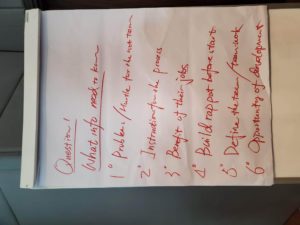 Question 1
What info need to know
1° Problem / Hurtle for the not team
2° Instruction for the process
3° Benefit of their jobs
4° Build rapport before start
5° Define the team /
6° Opportunity of development